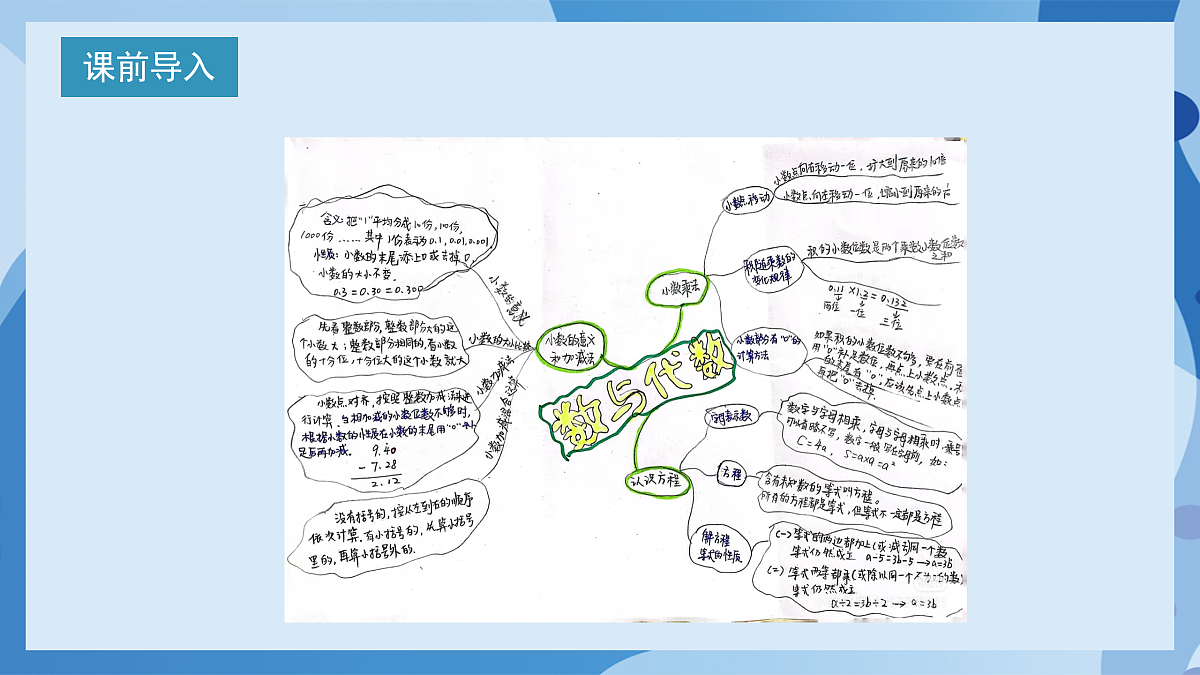 课前导入
数与代数
小数的意义
和加减法
小数的意义
含义:把"1"平均分成10份,100份,
1000份……其中1份表示0.1,0.01,0.001
性质:小数的末尾添上0或去掉0,
小数的大小不变。
0.3=0.30=0.300
小数的大小比较
先看整数部分,整数部分大的这
个小数大;整数部分相同的,看小数
的十分位,十分位大的这个小数就大
小数加减法
小数点对齐,按照整数加减法
行计算。当相加减的小数位数不够时,
根据小数的性质在小数的末尾用"0"
足后再加减。
9.40
-7.28
2.12
小数加减混合运算
没有括号的,按从左到右的顺序
依次计算。有小括号的,从算小括号
里的,再算小括号外的。
小数乘法
小数点移动
小数点向右移动一位,扩大到原来的10倍
小数点向左移动一位,缩小到原来的
积随乘数的
变化规律
积的小数位数是两个乘数小数位数
之和
0.11×1.2=0.132
两位 一位 三位
小数部分有"0"的
计算方法
如果积的小数位数不够多,要在前面
用"0"补足数位,再点上小数点,
的末尾有"0",应该先点上小数点
再把"0"去掉。
认识方程
字母表示数
数字与字母相乘,字母与字母相乘时,乘号
可以省略不写,数字一般写在字母前,如:
C=4a, S=a×a=a²
方程
含有未知数的等式叫方程。
所有的方程都是等式,但等式不一定都是方程
解方程
等式的性质
(一)等式的两边都加上(或减去)同一个数
等式仍然成立 a-5=3b-5→a=3b
(二)等式两等都乘(或除以同一个不为0的数)
等式仍然成立
a÷2=3b÷2→a=3b